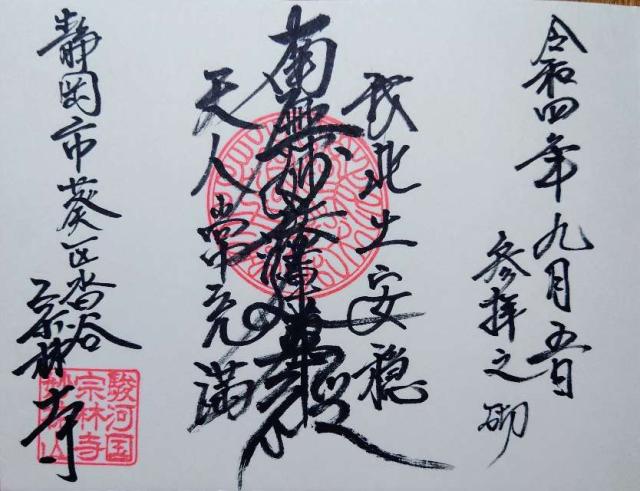 令和四年九月五日
参拝之砌
我此土安穏
南無妙法蓮華経
天人常充満
静岡市葵区沓谷
宗林寺
駿河国
宗林寺